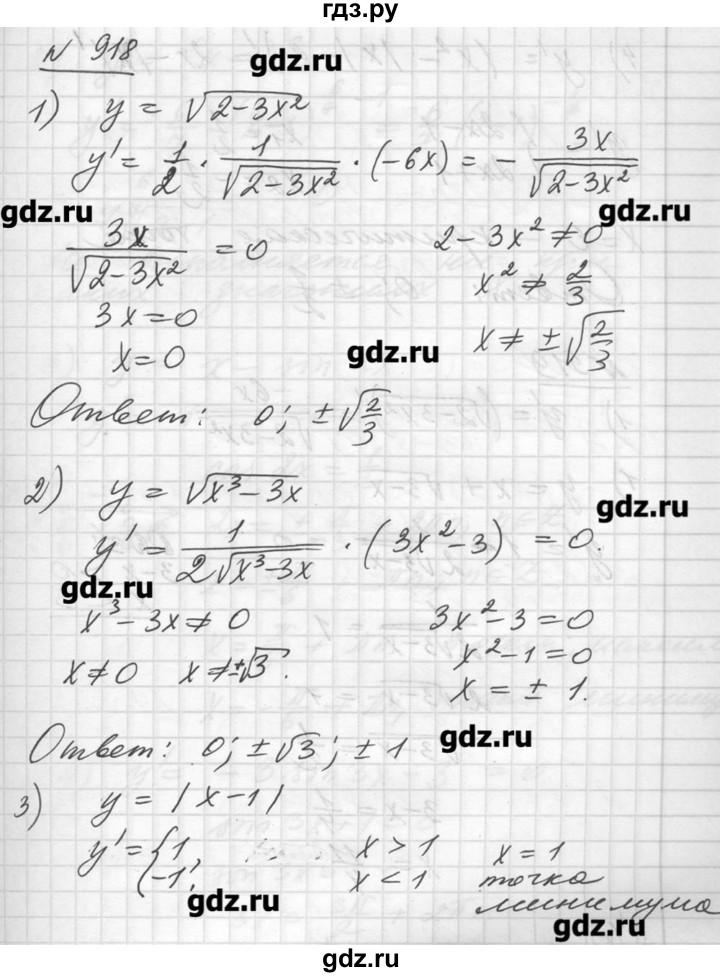 гдз.ру
№ 918
gdz.ru
1) y = √(2-3x²)
y' = 1/2 · 1/√(2-3x²) · (-6x) = - 3x/√(2-3x²)
gdz.ru gdz.ru
3x/√(2-3x²) = 0 2-3x² ≠ 0
x² ≠ 2/3
3x = 0
x = 0 gdz.ru x ≠ ±√(2/3)
Ответ: 0; ±√(2/3)
2) y = √(x³-3x)
gdz.ru
y' = 1/(2√(x³-3x)) · (3x²-3) = 0.
gdz.ru
x³-3x ≠ 0 3x²-3 = 0
x²-1 = 0
x ≠ 0 x ≠ ±√3. x = ± 1.
Ответ: 0; ±√3; ± 1 gdz.ru
3) y = |x-1|
y' = {1, x > 1 x = 1
-1, x < 1 точка
gdz.ru минимума
gdz.ru
gdz.ru